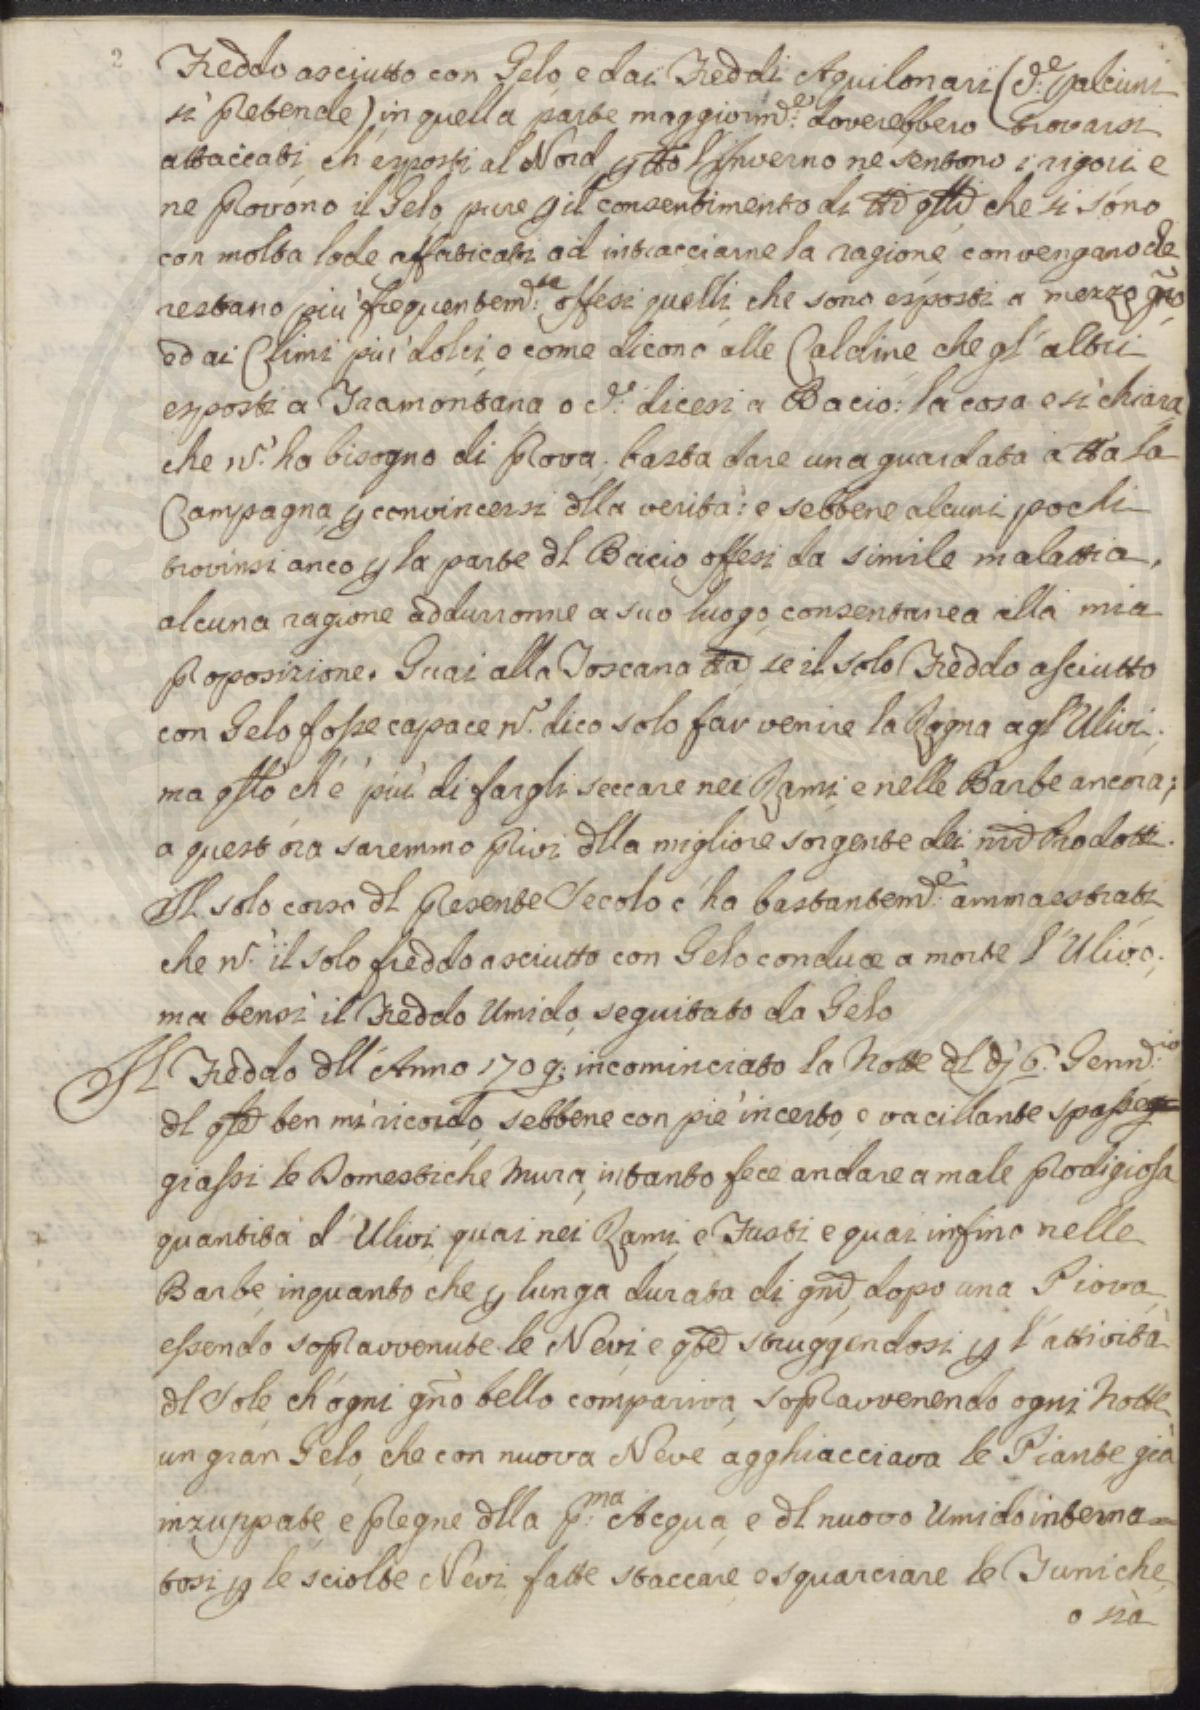 2
Freddo asciutto con Gelo e dai Freddi Aquilonari (c.e p alcuni
si Pretende) in quella parte maggiorm.e doverebbero trovarsi
attaccati ch'esposti al Nord p tto l'Inverno ne sentono i rigori e
ne Provono il Gelo, pure p il consentimento di tti qlli che si sono
con molta lode affaticati ad intracciarne la ragione, convengano che
restano più frequentem.te offesi quelli che sono esposti a mezzo gno,
ed ai Climi più dolci, o come dicono alle Caldine che gl'altri
esposti a Tramontana o c.e dicesi a Bacio: la cosa e sì chiara
che n. ha bisogno di Prova, basta dare una guardata a tta la
Campagna p convincersi dlla verità: e sebbene alcuni pochi
trovinsi anco p la parte dl Bacio offesi da simile malattia,
alcuna ragione addurronne a suo luogo consentanea alla mia
Proposizione. Guai alla Toscana tta, se il solo Freddo asciutto
con Gelo fosse capace n. dico solo far venire la Rogna agl'Ulivi;
ma qllo ch'è più di fargli seccare nei Rami, e nelle Barbe ancora;
a quest'ora saremmo Privi dlla migliore sorgente dei nri Prodotti.
Il solo corso dl Presente Secolo c'ha bastantem.e ammaestrati
che n. il solo freddo asciutto con Gelo conduce a morte l'Ulivo;
ma bensì il Freddo Umido, seguitato da Gelo
Il Freddo dll'Anno 1709; incominciato la Notte dl dj 6. Genn.io
dl qle ben mi ricordo, sebbene con piè incerto, e vacillante spasseg=
giassi le Domestiche Mura, intanto fece andare a male Prodigiosa
quantità d'Ulivi, quai nei Rami, e Fusti e quai infino nelle
Barbe, inquanto che p lunga durata di gni, dopo una Piova,
essendo sopravvenute le Nevi, e qste struggendosi p l'attività
dl Sole, ch'ogni gno bello compariva, sopravvenendo ogni Notte
un gran Gelo, che con nuova Neve agghiacciava le Piante già
inzuppate, e Pregne dlla p.ma Acqua, e dl nuovo Umido interna=
tosi p le sciolte Nevi, fatte staccare, e squarciare le Tuniche,
o sia